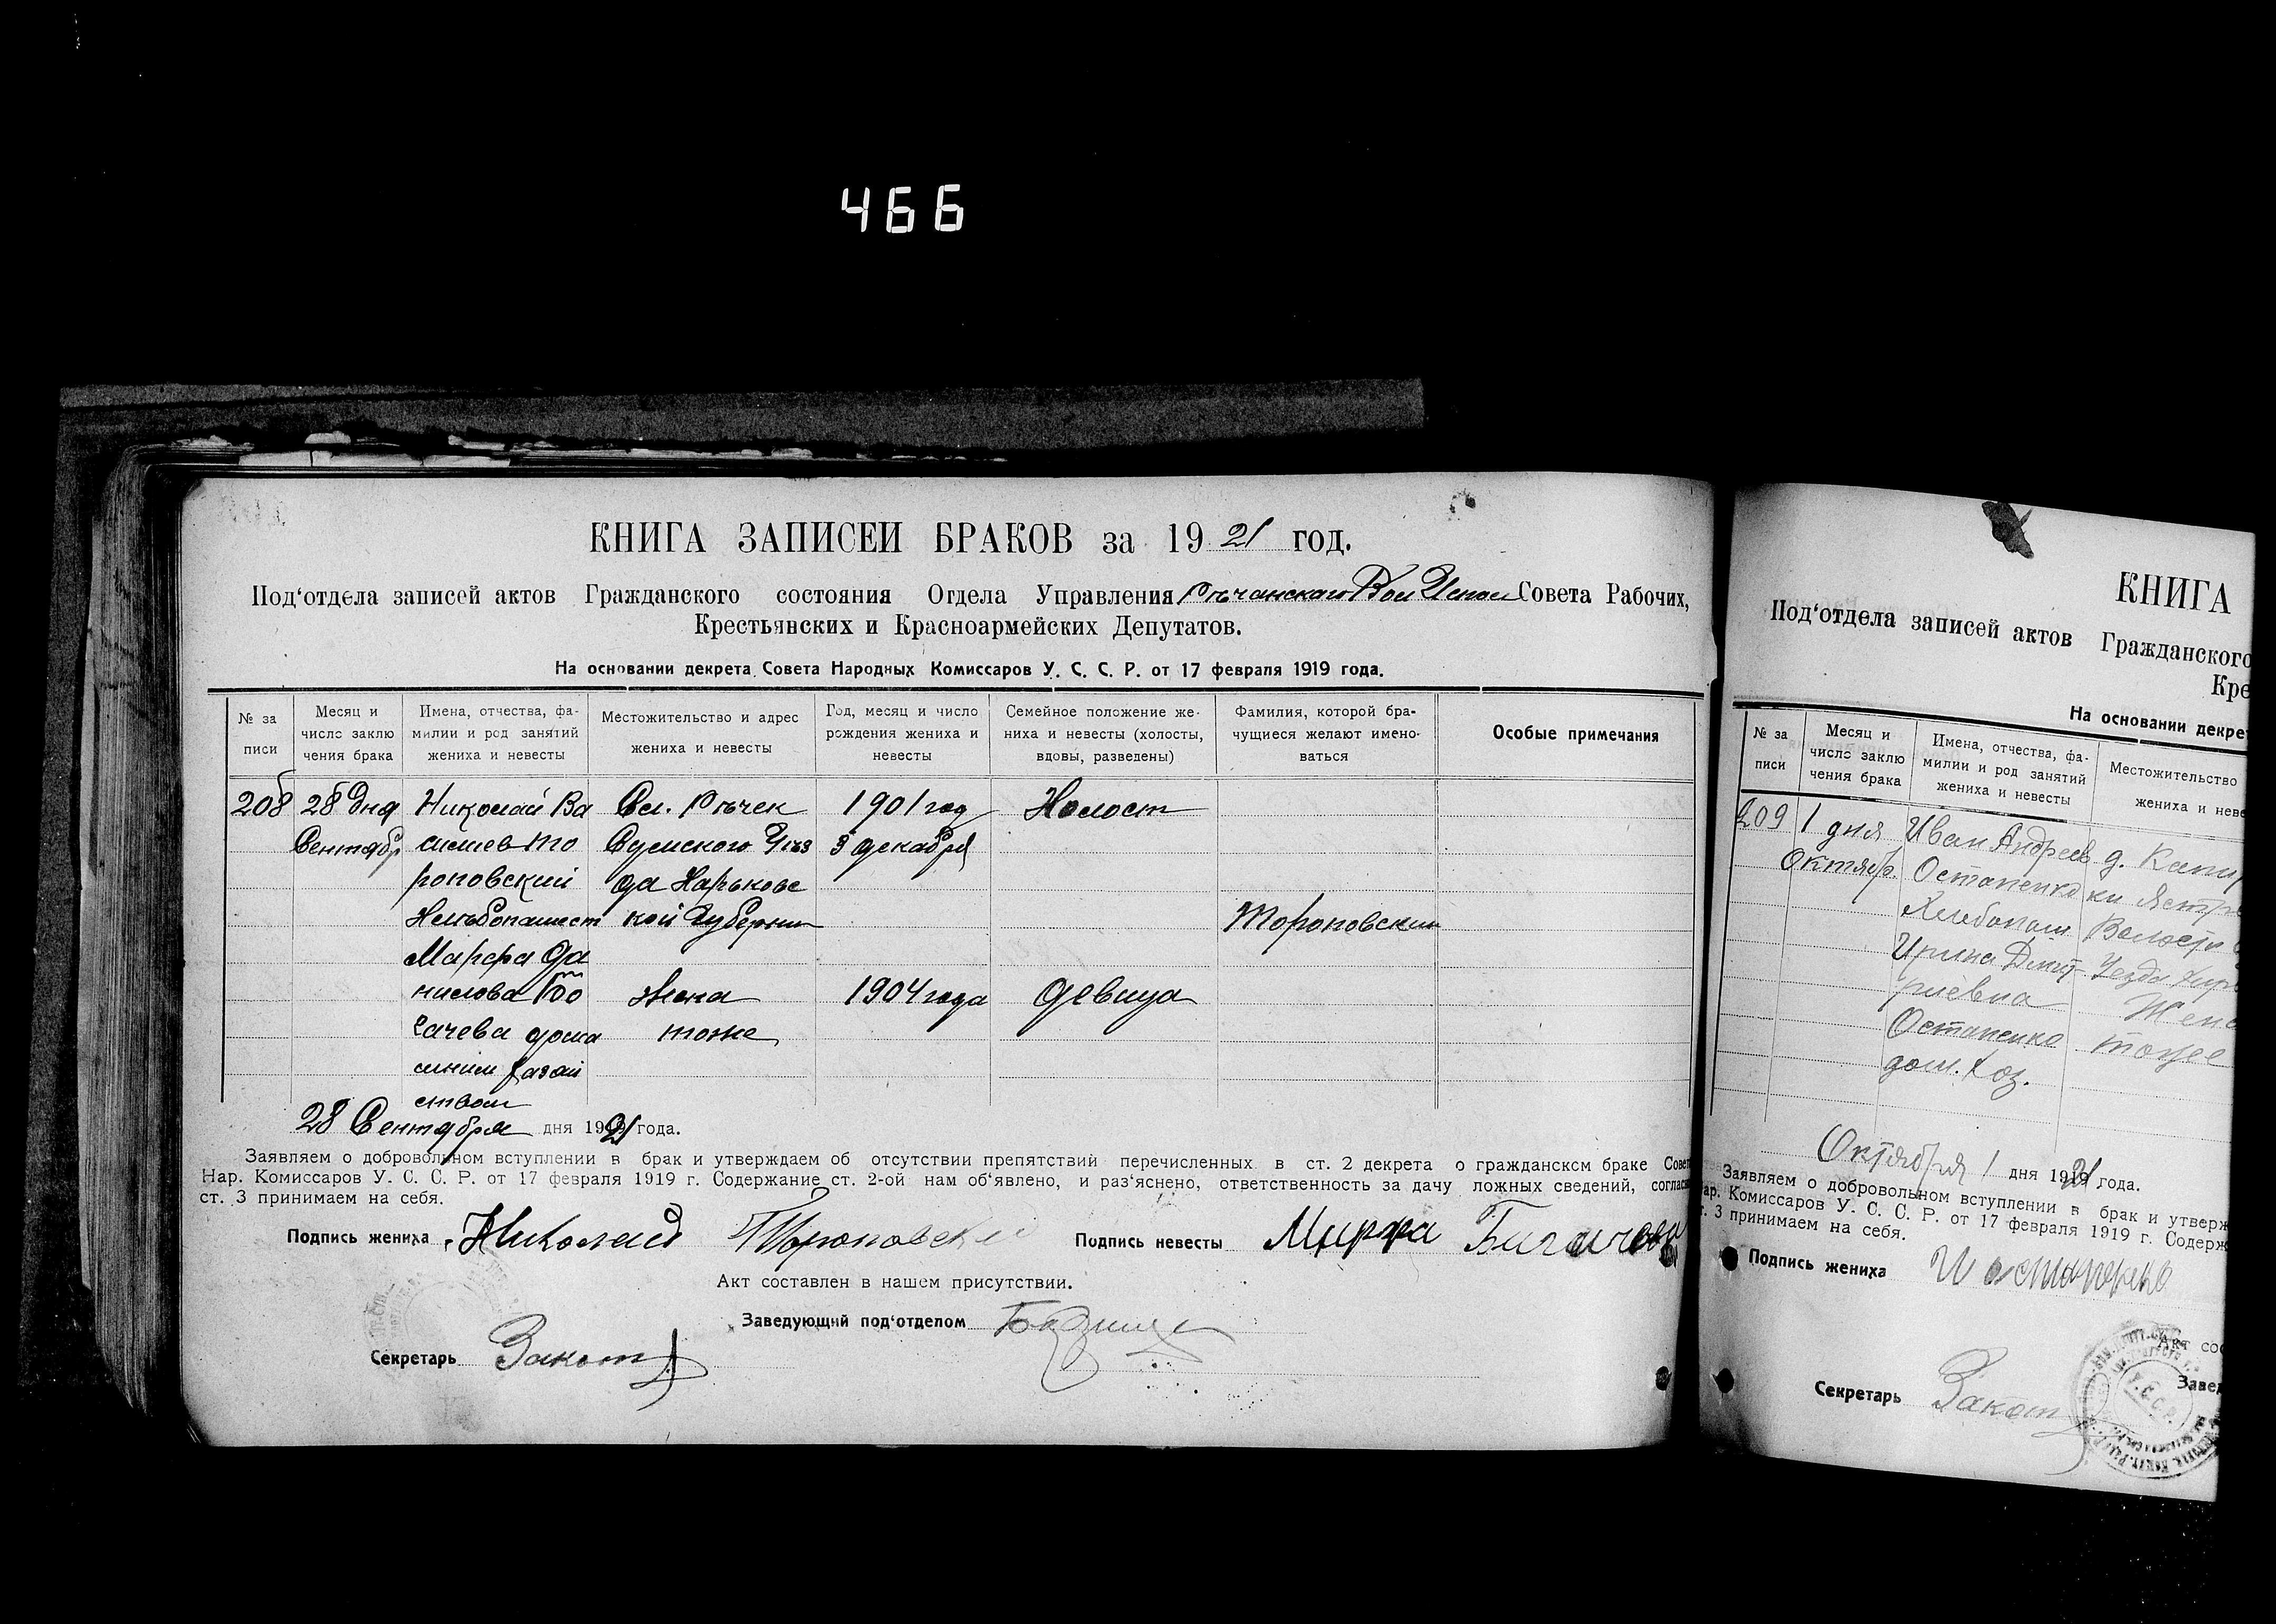 466
КНИГА ЗАПИСЕЙ БРАКОВ за 1921 год.
Под‘отдела записей актов Гражданского состояния Отдела Управления Рѣчанскаго Вол Испол Совета Рабочих,
Крестьянских и Красноармейских Депутатов.
На основании декрета Совета Народных Комиссаров У. С. С. Р. от 17 февраля 1919 года.
№ за писи
Месяц и число заклю чения брака
Имена, отчества, фамилии и род занятий жениха и невесты
Местожительство и адрес жениха и невесты
Год, месяц и число рождения жениха и невесты
Семейное положение жениха и невесты (холосты, вдовы, разведены)
Фамилия, которой брачущиеся желают именоваться
Особые примечания
208 28 дня Николай Ва Сл. Рѣчек 1901 год Холост
Сентябр силиев То Сумского Уѣз 3 декабря
роповский да Харьковс
Хлѣбопашест кой Губернии Тороповский
Марфа Да
нилова Бо жена 1904 года девица
гачева дома тоже
шним хазяй
ством
28 Сентября дня 1921 года.
Заявляем о добровольном вступлении в брак и утверждаем об отсутствии препятствий перечисленных в ст. 2 декрета о гражданском браке Совет
Нар. Комиссаров У. С. С. Р. от 17 февраля 1919 г. Содержание ст. 2-ой нам об‘явлено, и раз‘яснено, ответственность за дачу ложных сведений, соглас
ст. 3 принимаем на себя.
Подпись жениха Николай Тороповский Подпись невесты Марфа Багачова
Акт составлен в нашем присутствии.
Заведующий под‘отделом
Секретарь Закот
КНИГА
Под‘отдела записей актов Гражданского
Кре
На основании декрет
№ за писи
Месяц и число заклю чения брака
Имена, отчества, фамилии и род занятий жениха и невесты
Местожительство
жениха и неве
209 1 дня Иван Андреев д.
Октябр. Остапенко ки Ястр
Хлебопаш Волости
Ирина Дмит Уезда Хар
риевна Жена
Остапенко тоже
дом. хоз.
Октября 1 дня 1921 года.
Заявляем о добровольном вступлении в брак и утверж
ар. Комиссаров У. С. С. Р. от 17 февраля 1919 г. Содерж
т. 3 принимаем на себя.
Подпись жениха И Остапенко
Акт сос
Завед
Секретарь Закот
У.С.С.Р.